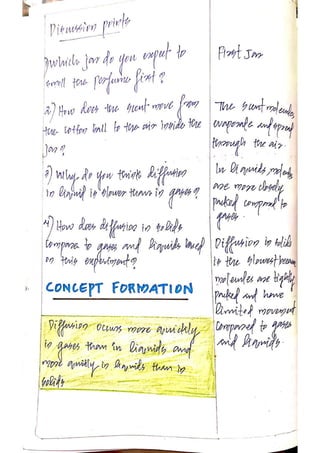 Discussion points
1) Which jar do you expect to
smell the perfume first?
2) How does the scent move from
the cotton ball to the air inside the
jar?
3) Why do you think diffusion
in liquid is slower than in gases?
4) How does diffusion in solids
compare to gases and liquids based
on this experiment?
CONCEPT FORMATION
Diffusion occurs more quickly
in gases than in liquids and
more quickly in liquids than in
solids
First Jar
The scent molecules
evaporate and spread
through the air.
In liquids molecules
are more closely
packed compared to
gases.
Diffusion in solids
is the slowest because
molecules are tightly
packed and have
limited movement
compared to gases
and liquids.